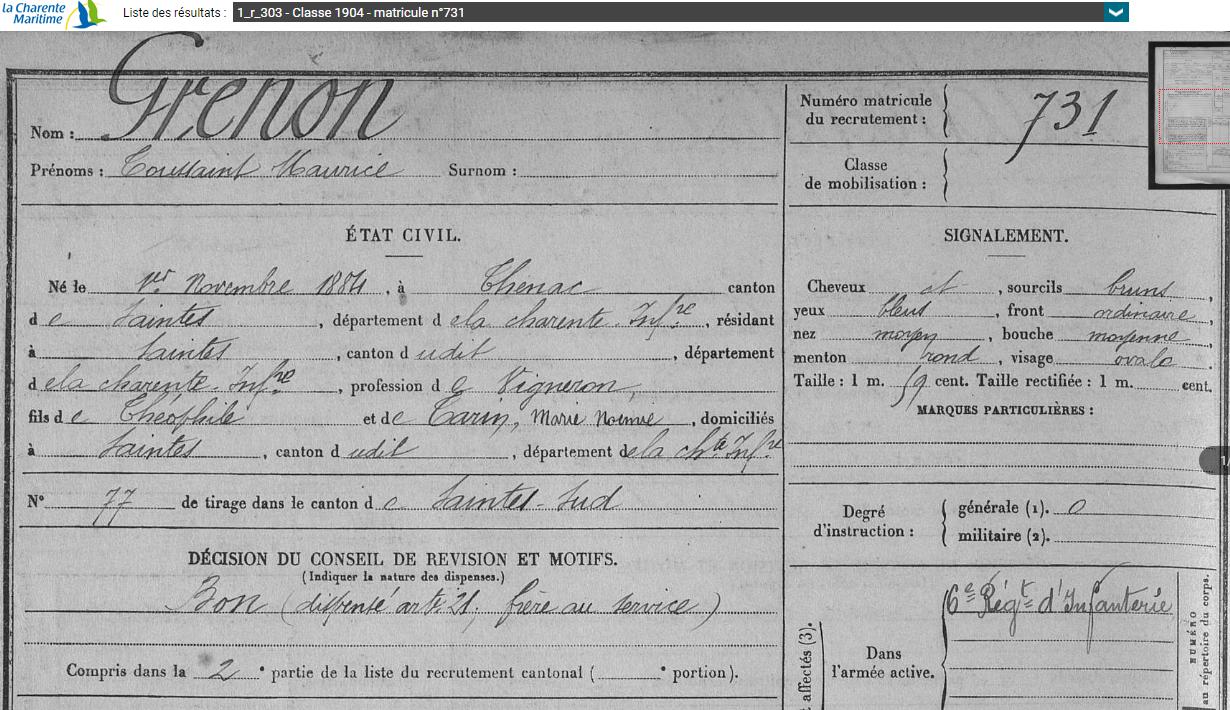 la Charente
Maritime
Liste des résultats : 1_r_303 - Classe 1904 - matricule n°731
Nom : Grenon
Prénoms : Toussaint Maurice Surnom :
Numéro matricule
du recrutement : 731
Classe
de mobilisation :
ÉTAT CIVIL.
Né le 1er Novembre 1884, à Thenac canton
de Saintes, département de la charente Infre, résidant
à Saintes, canton dudit, département
de la charente Infre, profession de Vigneron,
fils de Théophile et de Tarin, Marie Noémie, domiciliés
à Saintes, canton dudit, département de la chte Infre
N° 77 de tirage dans le canton de Saintes-Sud
DÉCISION DU CONSEIL DE REVISION ET MOTIFS.
(Indiquer la nature des dispenses.)
Bon (dispensé arte 21, frère au service)
Compris dans la 2e partie de la liste du recrutement cantonal ( e portion).
SIGNALEMENT.
Cheveux et, sourcils bruns,
yeux bleus, front ordinaire,
nez moyen, bouche moyenne,
menton rond, visage ovale
Taille : 1 m. 59 cent. Taille rectifiée : 1 m. cent.
MARQUES PARTICULIÈRES :
Degré
d'instruction :
générale (1). 0
militaire (2).
affectés (3).
Dans
l'armée active.
6e Régt d'Infanterie
NUMÉRO
au répertoire du corps.